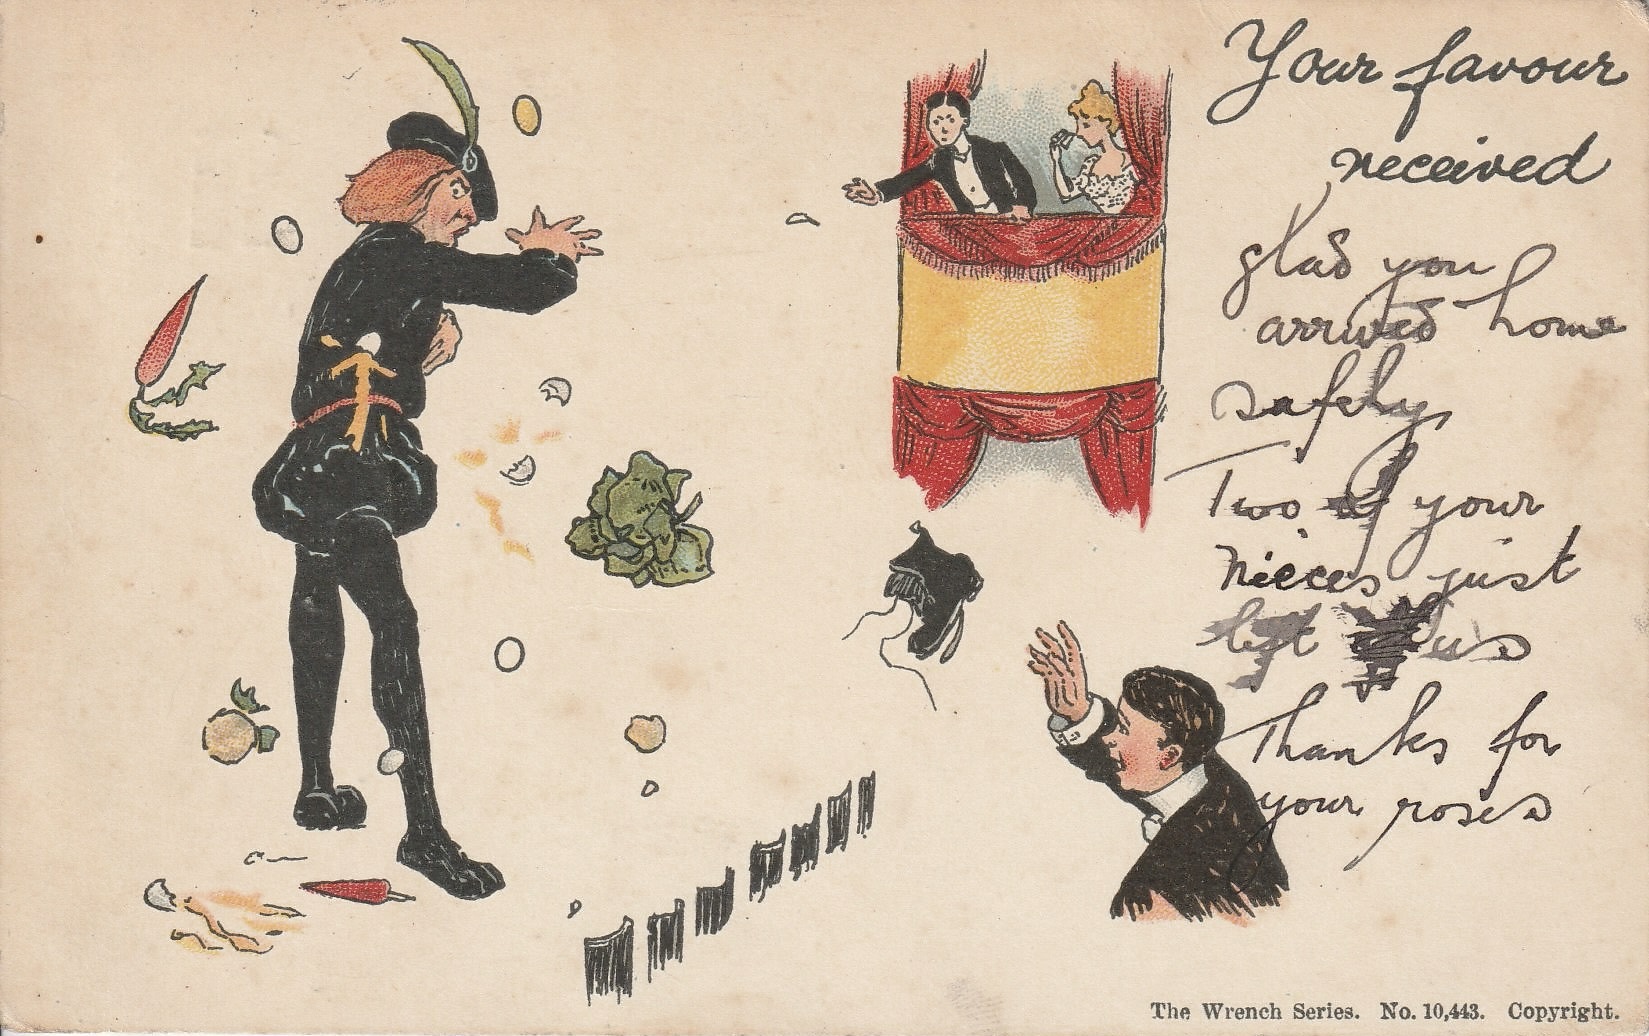 Your favour
received
glad you
arrived home
safely
Two of your
nieces just
left us
Thanks for
your roses
The Wrench Series. No. 10,443. Copyright.